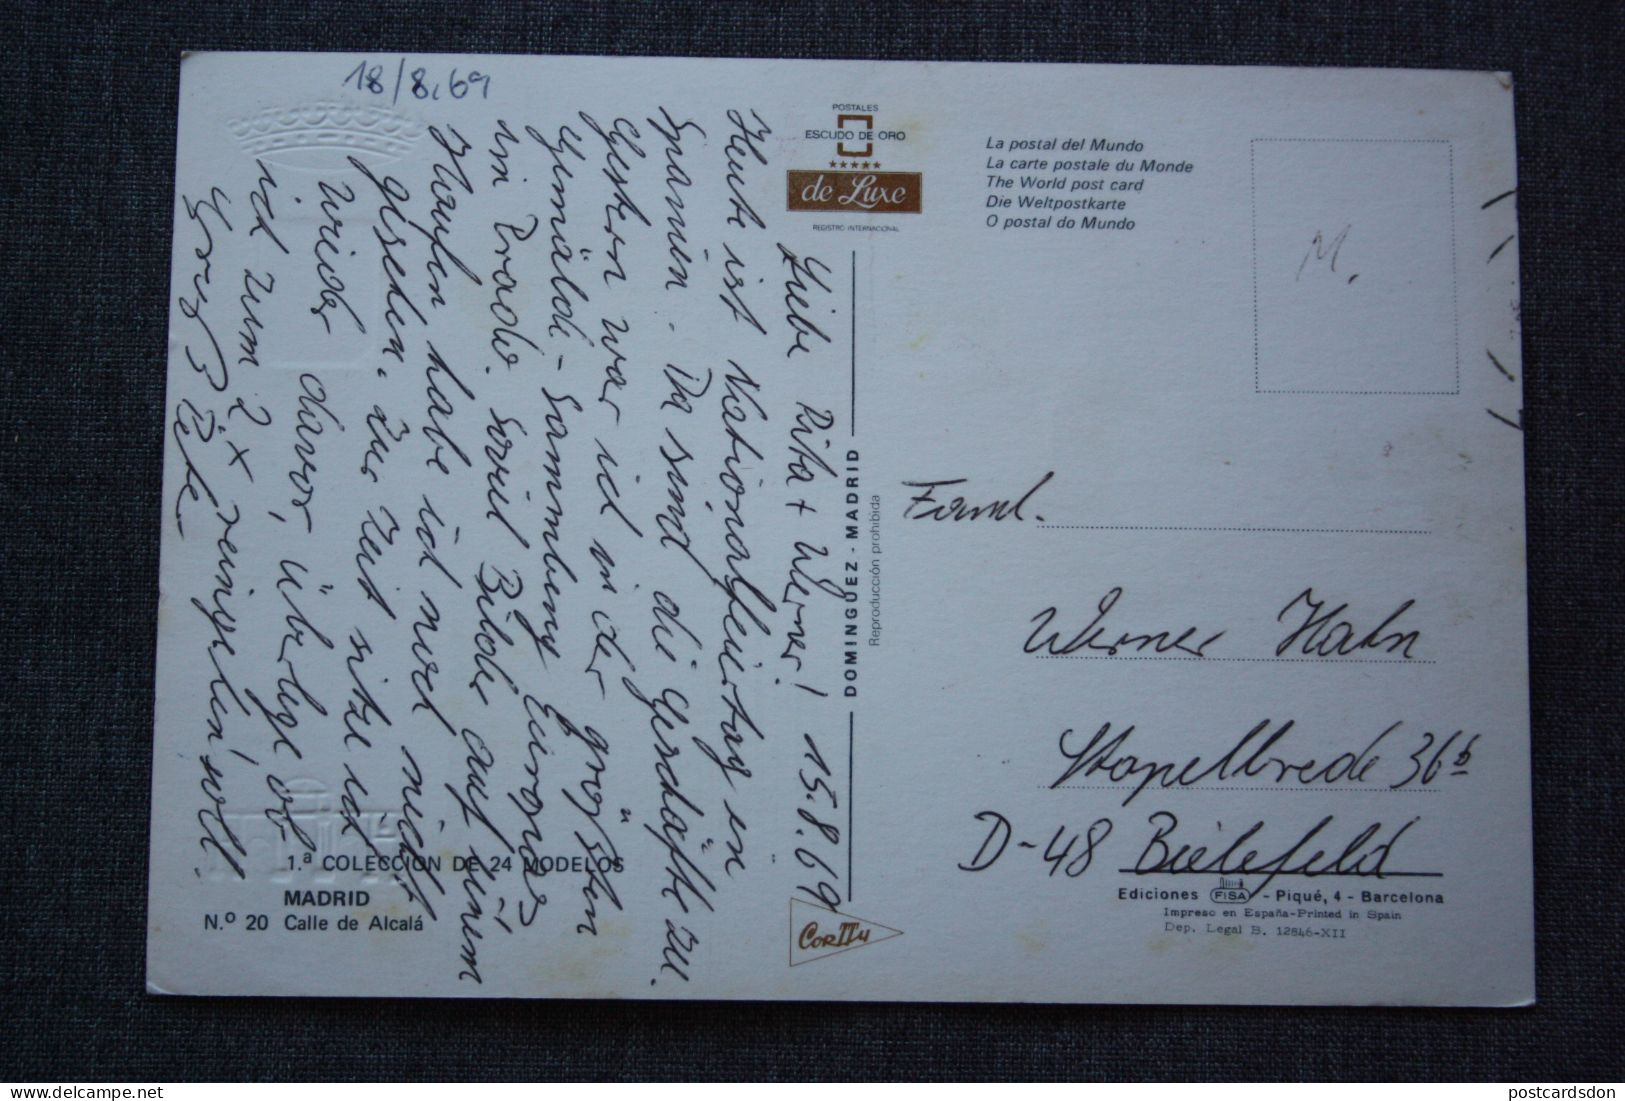 18/8.69
Liebe Rita + Werner! 15.8.69
Heute ist Nationalfeiertag in
Spanien. Da sind die Geschäfte zu.
Gestern war ich in der größten
Gemälde-Sammlung Europas
im Prado. Soviel Bilder auf einem
Haufen habe ich noch nicht
gesehen. Zur Zeit sitze ich
wieder davor, überlege ob
ich zum 2x reingehen soll.
Gruß
POSTALES
ESCUDO DE ORO
★★★★★
de Luxe
REGISTRO INTERNACIONAL
DOMINGUEZ - MADRID
Reproducción prohibida
CORTTY
1.ª COLECCION DE 24 MODELOS
MADRID
N.º 20 Calle de Alcalá
La postal del Mundo
La carte postale du Monde
The World post card
Die Weltpostkarte
O postal do Mundo
M.
Faml.
Werner Hahn
Stapelbrede 36b
D-48 Bielefeld
Ediciones FISA - Piqué, 4 - Barcelona
Impreso en España-Printed in Spain
Dep. Legal B. 12846-XII
postcardsdon